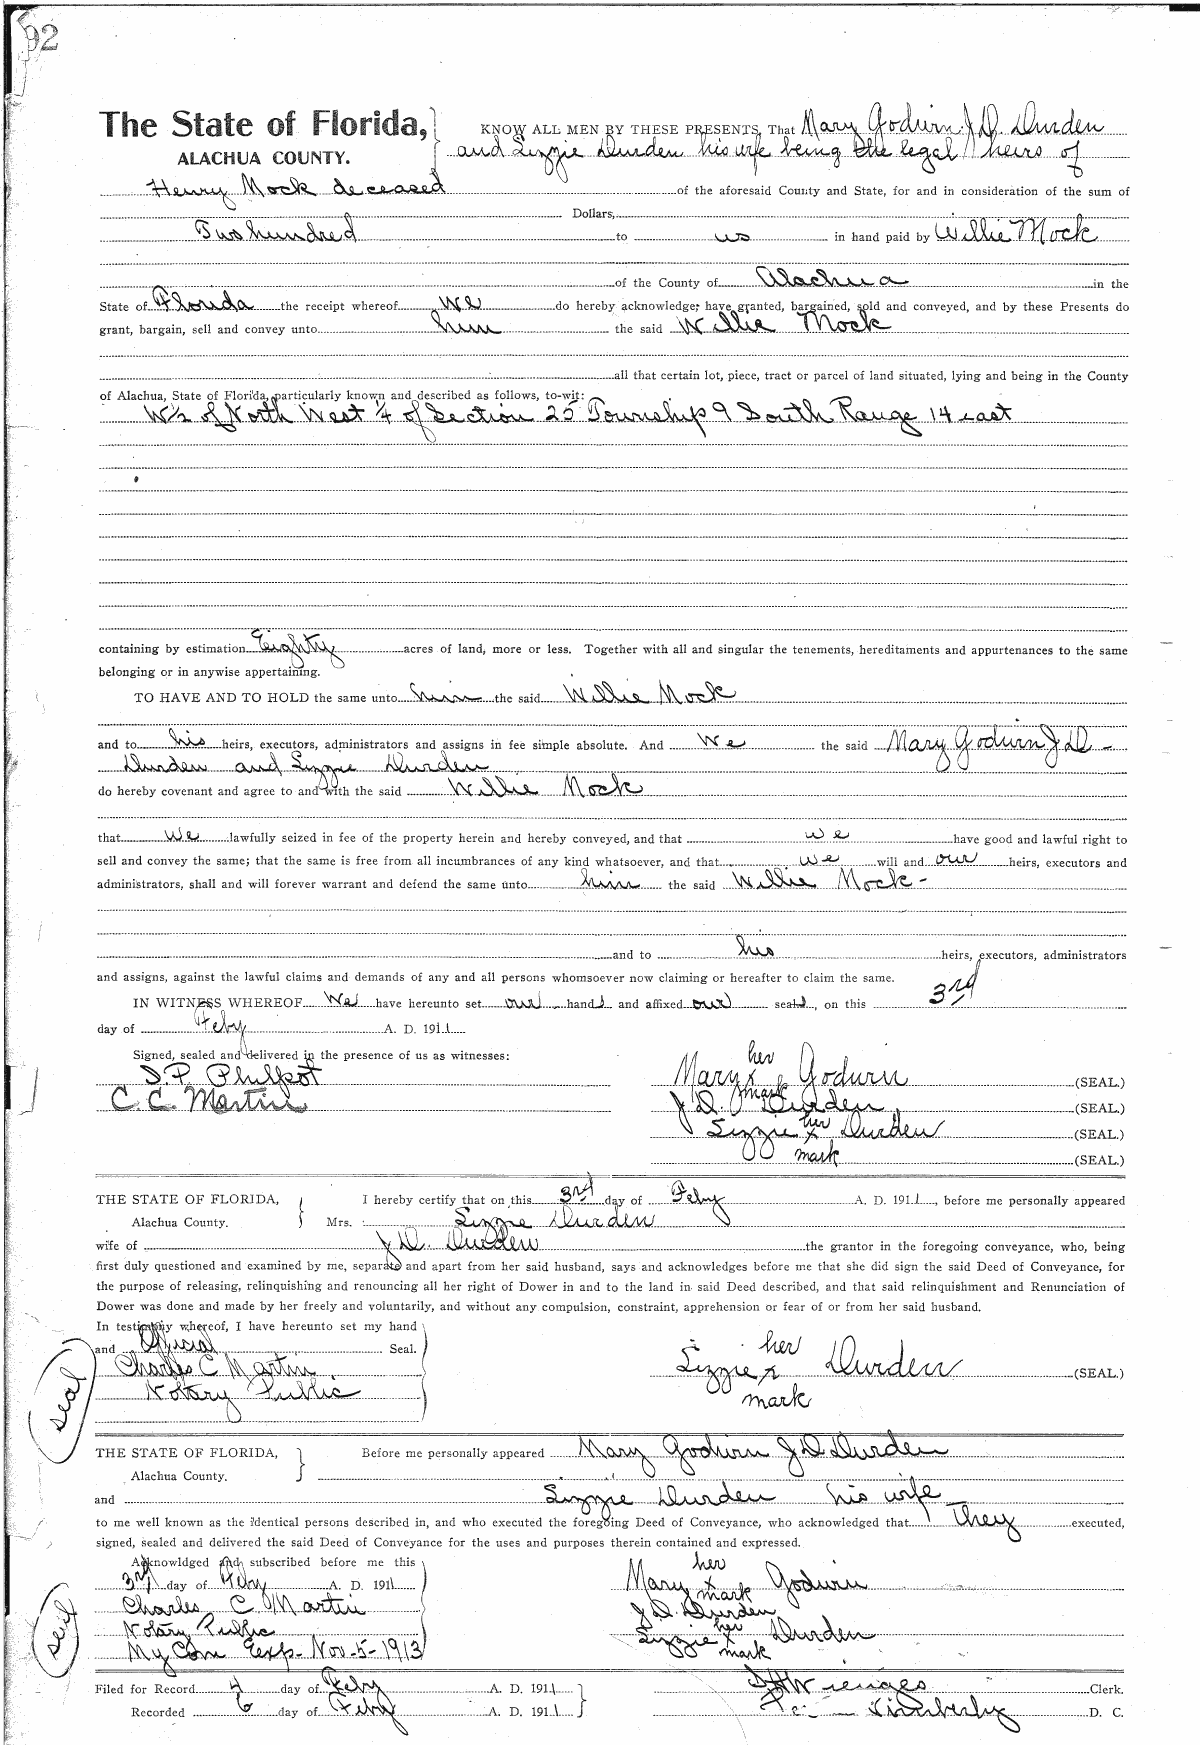 92
The State of Florida, KNOW ALL MEN BY THESE PRESENTS, That Mary Godwin J. D. Durden
ALACHUA COUNTY. and Lizzie Durden his wife being the legal heirs of
Henry Mock deceased of the aforesaid County and State, for and in consideration of the sum of
Dollars,
Two hundred to us in hand paid by Willie Mock
of the County of Alachua in the
State of Florida the receipt whereof we do hereby acknowledge; have granted, bargained, sold and conveyed, and by these Presents do
grant, bargain, sell and convey unto him the said Willie Mock
all that certain lot, piece, tract or parcel of land situated, lying and being in the County
of Alachua, State of Florida, particularly known and described as follows, to-wit:
W½ of North West ¼ of Section 25 Township 9 South Range 14 east
containing by estimation Eighty acres of land, more or less. Together with all and singular the tenements, hereditaments and appurtenances to the same
belonging or in anywise appertaining.
TO HAVE AND TO HOLD the same unto him the said Willie Mock
and to his heirs, executors, administrators and assigns in fee simple absolute. And We the said Mary Godwin J D -
Durden and Lizzie Durden
do hereby covenant and agree to and with the said Willie Mock
that we lawfully seized in fee of the property herein and hereby conveyed, and that we have good and lawful right to
sell and convey the same; that the same is free from all incumbrances of any kind whatsoever, and that we will and our heirs, executors and
administrators, shall and will forever warrant and defend the same unto him the said Willie Mock -
and to his heirs, executors, administrators
and assigns, against the lawful claims and demands of any and all persons whomsoever now claiming or hereafter to claim the same.
IN WITNESS WHEREOF We have hereunto set our hands and affixed our seals, on this 3rd
day of Feby A. D. 1911
Signed, sealed and delivered in the presence of us as witnesses:
her
D. P. Philpot Mary x Godwin (SEAL.)
mark
C. C. Martin J D. Durden (SEAL.)
her
Lizzie x Durden (SEAL.)
mark (SEAL.)
THE STATE OF FLORIDA, I hereby certify that on this 3rd day of Feby A. D. 1911, before me personally appeared
Alachua County. Mrs. Lizzie Durden
wife of J D. Durden the grantor in the foregoing conveyance, who, being
first duly questioned and examined by me, separate and apart from her said husband, says and acknowledges before me that she did sign the said Deed of Conveyance, for
the purpose of releasing, relinquishing and renouncing all her right of Dower in and to the land in said Deed described, and that said relinquishment and Renunciation of
Dower was done and made by her freely and voluntarily, and without any compulsion, constraint, apprehension or fear of or from her said husband.
In testimony whereof, I have hereunto set my hand
and Official Seal.
her
Charles C Martin Lizzie x Durden (SEAL.)
Notary Public mark
seal
THE STATE OF FLORIDA, Before me personally appeared Mary Godwin J D Durden
Alachua County.
and Lizzie Durden his wife
to me well known as the identical persons described in, and who executed the foregoing Deed of Conveyance, who acknowledged that They executed,
signed, sealed and delivered the said Deed of Conveyance for the uses and purposes therein contained and expressed.
Acknowldged and subscribed before me this her
3rd day of Feby A. D. 1911 Mary x Godwin
mark
Charles C Martin J. D. Durden
Notary Public her
Lizzie x Durden
My Com Exp- Nov-5-1913 mark
seal
Filed for Record 4 day of Feby A. D. 1911 Wienges Clerk.
Recorded 6 day of Feby A. D. 1911 D. C.